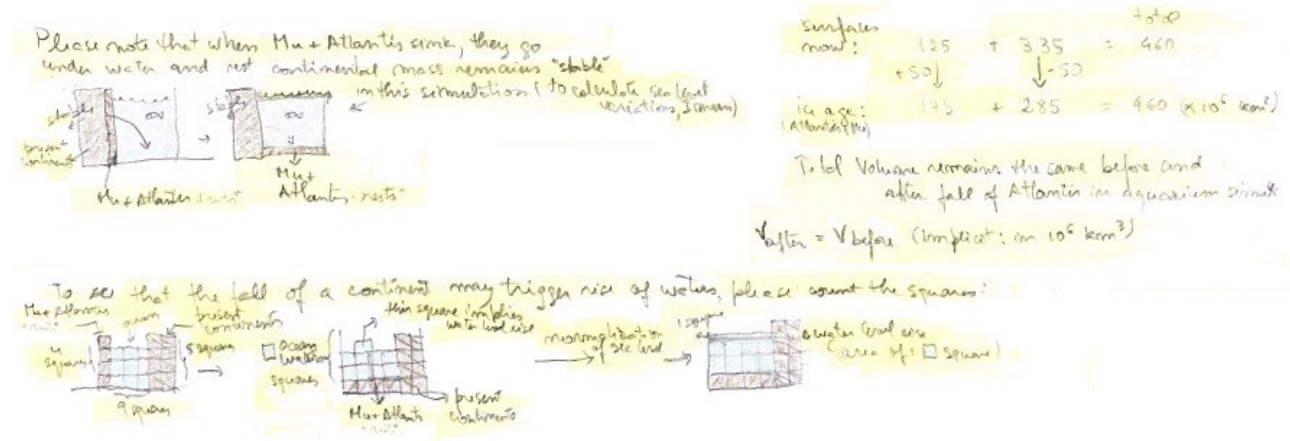 Please note that when Mu + Atlantis sink, they go
under water and rest continental mass remains "stable"
in this simulation (to calculate sea level
variations, I mean)
stable
stable
∞
∞
present
continent
Mu + Atlantis
Mu +
Atlantis
surfaces
now:
total
125 + 335 = 460
+50 ↓ ↓ -50
ice age:
175 + 285 = 460 (x10⁶ km²)
(Atlantis, Mu)
Total Volume remains the same before and
after fall of Atlantis in aquarium
V after = V before (implicit: in 10⁶ km³)
To see that the fall of a continent may trigger rise of waters, please count the squares:
Mu + Atlantis
ocean
present
continents
4
squares
squares
9 squares
ocean
water
squares
this square implies
water level rise
Mu + Atlantis
present
continents
normalization
of sea level
1 square
water level rise
area of 1 square)